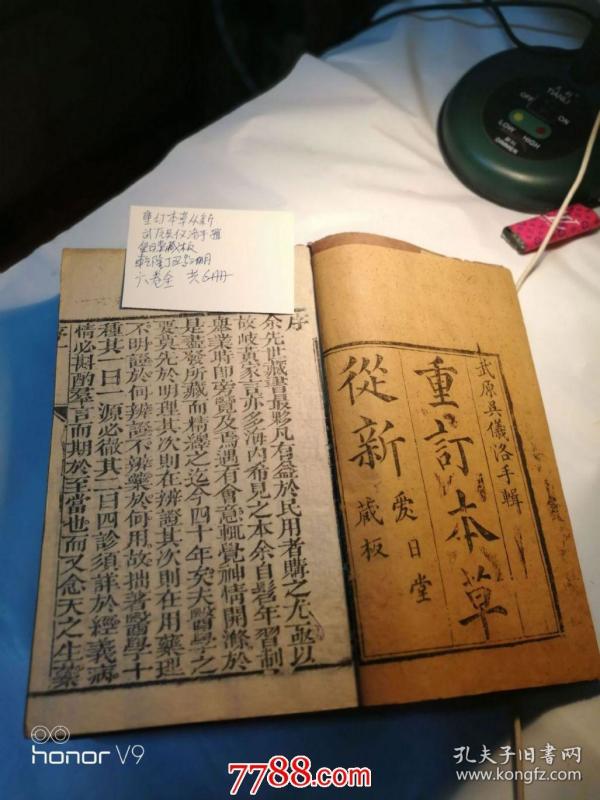 重訂本草从新
武原吴仪洛手辑
爱日堂藏板
乾隆丁丑
六卷全 共6册
武原吳儀洛手輯
重訂本草
從新
愛日堂
藏板
序
余先世藏書最夥凡有益於民用者購之尤亟以
故岐黃家言亦多海內希見之本余自髫年習制
舉業時卽旁覽及焉遇有會意輒覺神情開滌於
是盡發所藏而精繹之迄今四十年矣夫醫學之
要莫先於明理其次則在辨證其次則在用藥理
不明證於何辨證不辨藥於何用故拙著醫學十
種其一曰一源必徵其二曰四診須詳於經義病
情必斟酌羣言而期於至當也而又念天之生藥
序 一
TIANLI
OFF
ON
LOW
HIGH
DIMMER
honor V9
7788.com
孔夫子旧书网
www.kongfz.com